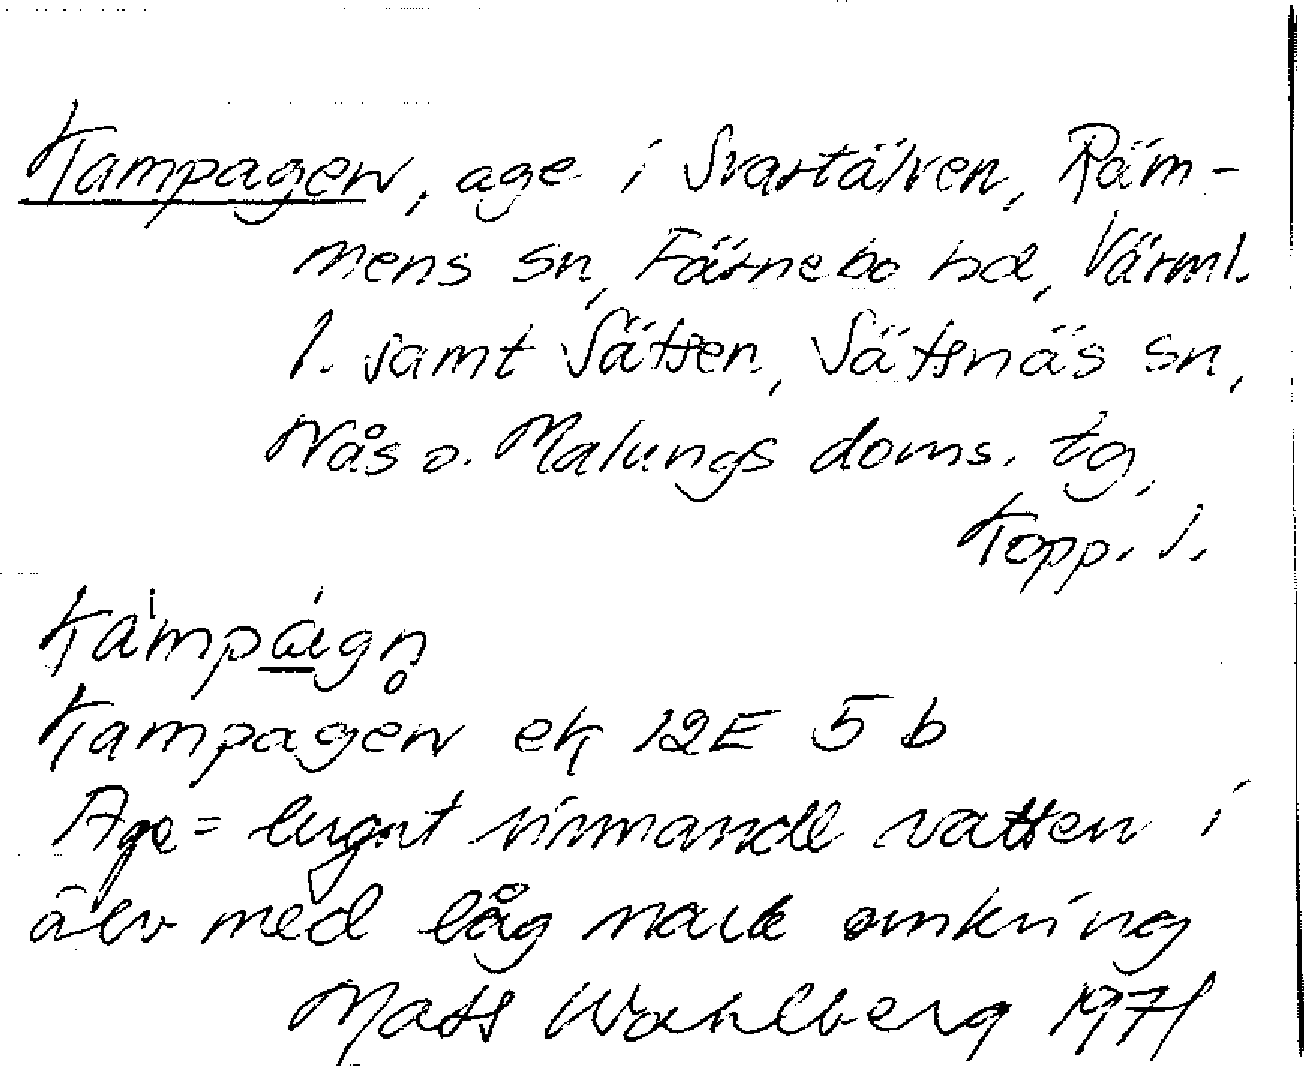 Kampagen, age i Svartälven, Räm-
mens sn, Färnebo hd, Värml.
l. samt Sätsen, Sätsnäs sn,
Nås o. Malungs doms. tg,
Kopp. l.
Kampagen ek 12E 5 b
Age = lugnt rinnande vatten i
älv med låg mark omkring
Mats Wahlberg 1971